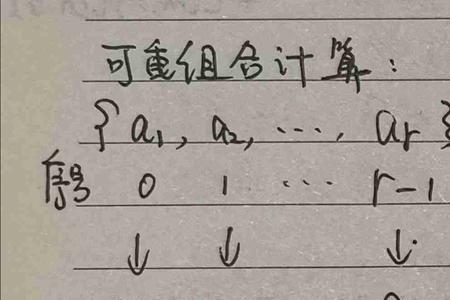 可重组合计算：
{ a₁, a₂, ···, aᵣ }
序号 0 1 ··· r-1
↓ ↓ ↓